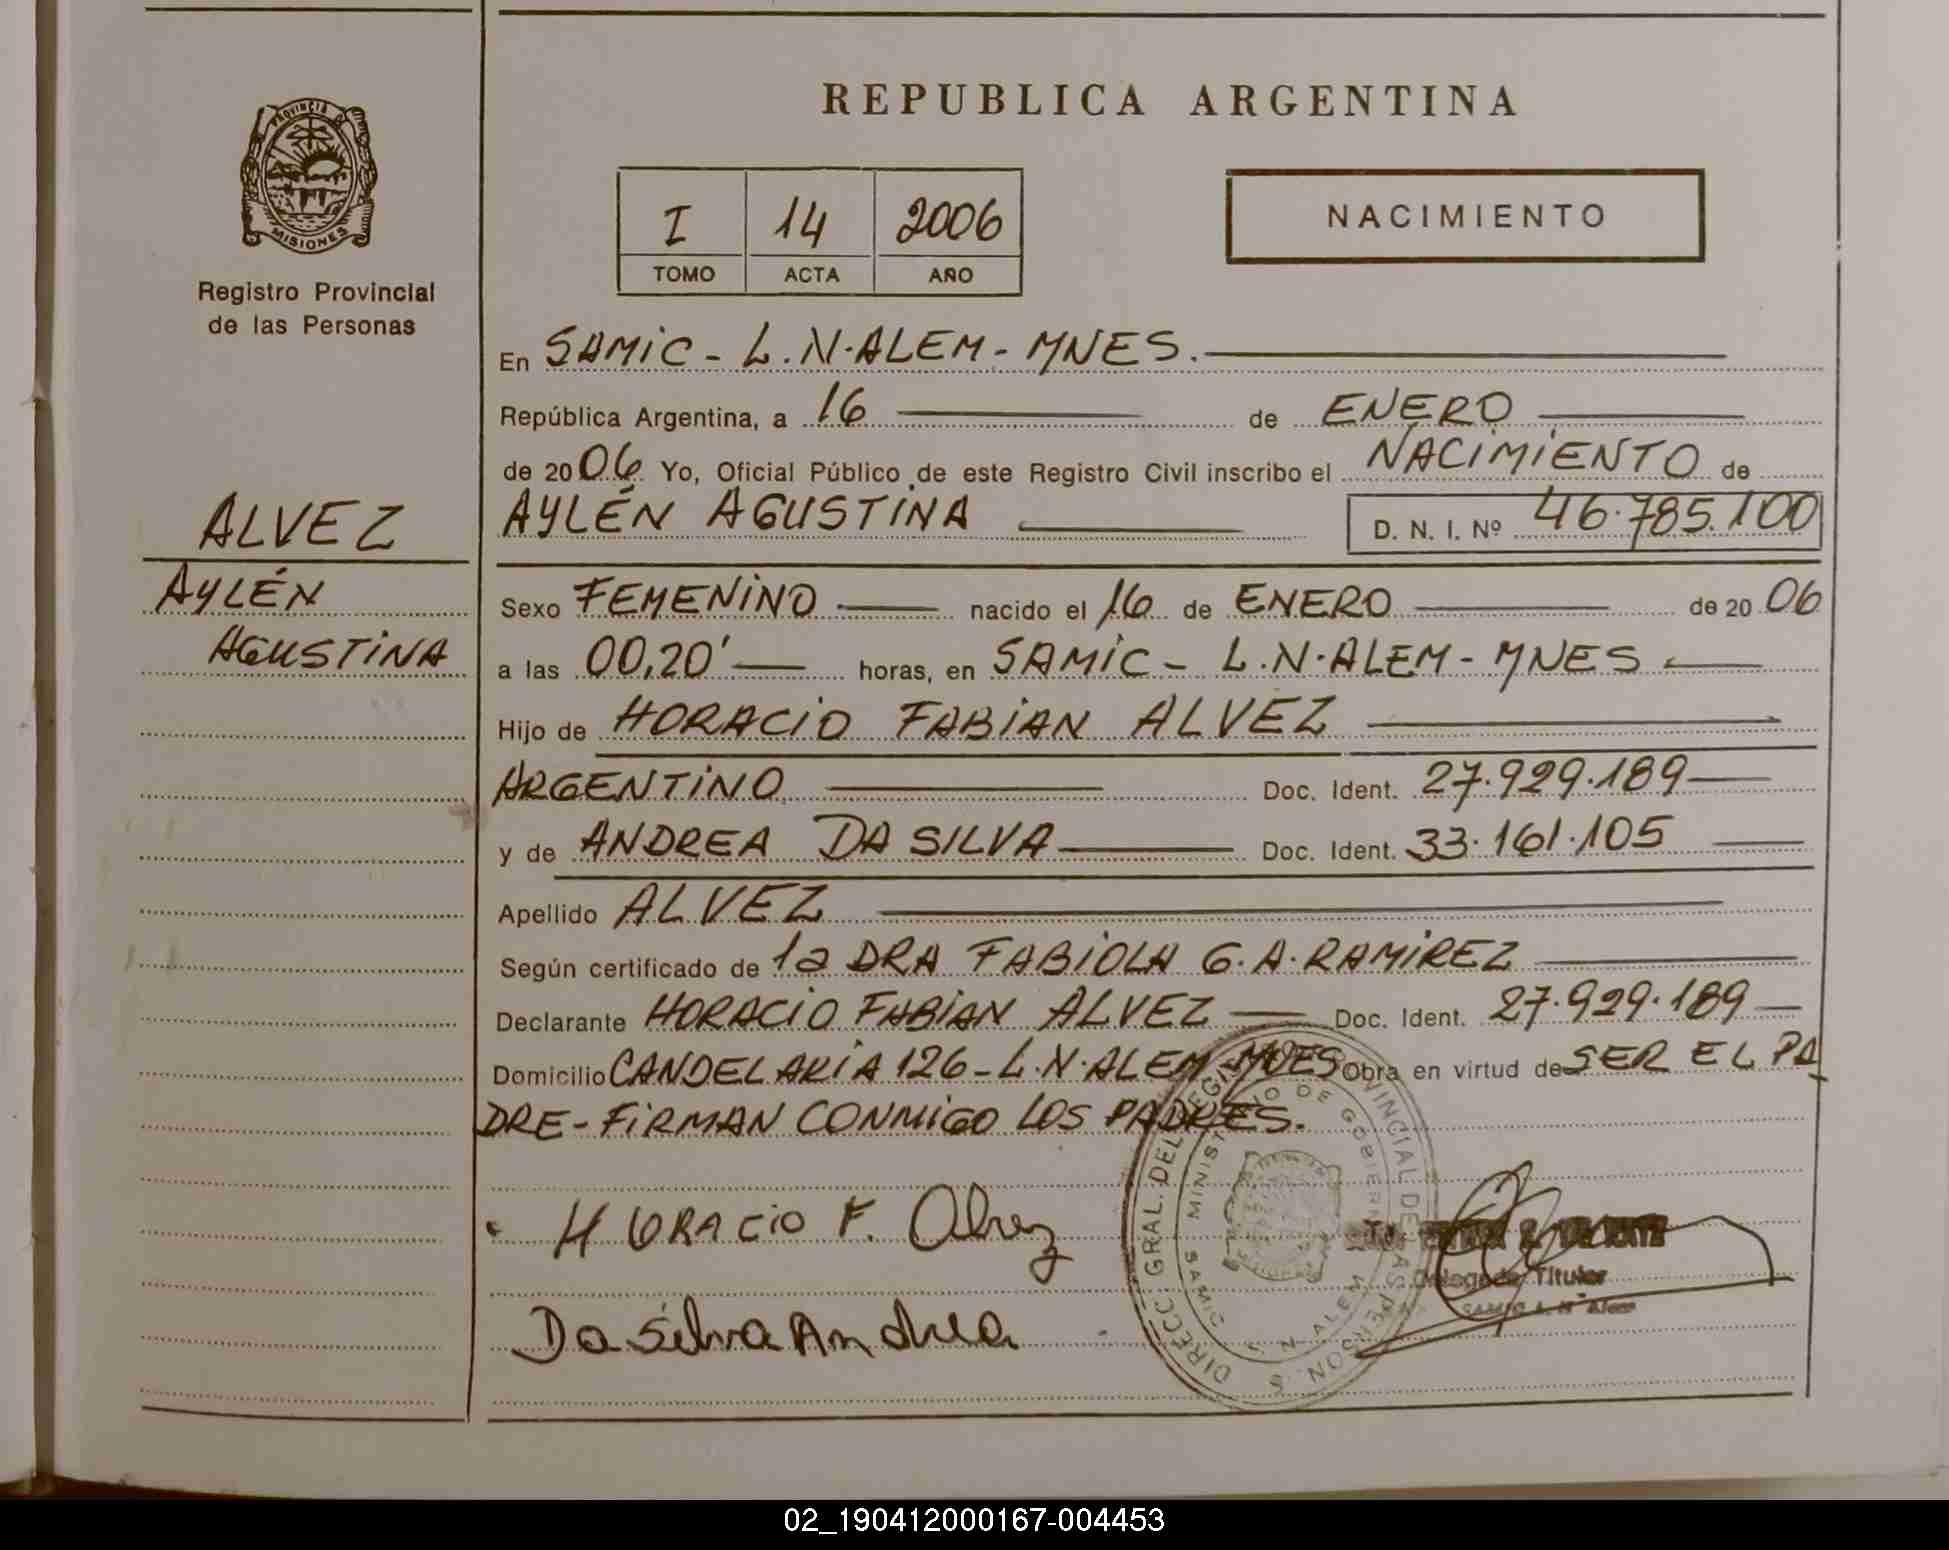 REPUBLICA ARGENTINA
PROVINCIA DE
MISIONES
Registro Provincial
de las Personas
I 14 2006
TOMO ACTA AÑO
NACIMIENTO
En SAMIC - L.N.ALEM - MNES.
República Argentina, a 16 de ENERO
de 2006 Yo, Oficial Público de este Registro Civil inscribo el NACIMIENTO de
AYLÉN AGUSTINA D. N. I. Nº 46.785.100
ALVEZ
AYLÉN
AGUSTINA
Sexo FEMENINO nacido el 16 de ENERO de 2006
a las 00,20' horas, en SAMIC - L.N.ALEM - MNES
Hijo de HORACIO FABIAN ALVEZ
ARGENTINO Doc. Ident. 27.929.189
y de ANDREA DA SILVA Doc. Ident. 33.161.105
Apellido ALVEZ
Según certificado de la DRA FABIOLA G.A.RAMIREZ
Declarante HORACIO FABIAN ALVEZ Doc. Ident. 27.929.189
Domicilio CANDELARIA 126 - L.N.ALEM MNES Obra en virtud de SER EL PA
DRE - FIRMAN CONMIGO LOS PADRES.
HORACIO F. Alvez
Da Silva Andrea
DIRECC GRAL. DEL PROVINCIAL DE LAS PERSON S
MINIST IO DE GOBIERN
SAMIC N ALEM
Titular
SAMIC L. N Alem
02_190412000167-004453